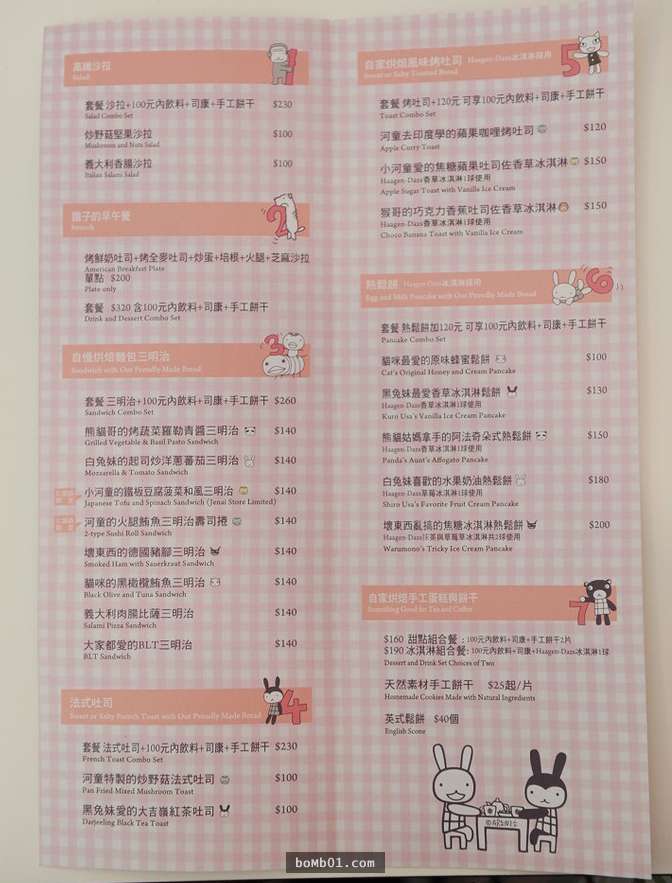 高纖沙拉
Salad
套餐 沙拉+100元內飲料+司康+手工餅干 $230
Salad Combo Set
炒野菇堅果沙拉 $100
Mushroom and Nuts Salad
義大利香腸沙拉 $100
Italian Salami Salad
鬍子的早午餐
Brunch
烤鮮奶吐司+烤全麥吐司+炒蛋+培根+火腿+芝麻沙拉
American Breakfast Plate
單點 $200
Plate only
套餐 $320 含100元內飲料+司康+手工餅干
Drink and Dessert Combo Set
自慢烘焙麵包三明治
Sandwich with Our Proudly Made Bread
套餐 三明治+100元內飲料+司康+手工餅干 $260
Sandwich Combo Set
熊貓哥的烤蔬菜羅勒青醬三明治 $140
Grilled Vegetable & Basil Pasto Sandwich
白兔妹的起司炒洋蔥蕃茄三明治 $140
Mozzarella & Tomato Sandwich
小河童的鐵板豆腐菠菜和風三明治 $140
Japanese Tofu and Spinach Sandwich (Jenai Store Limited)
河童的火腿鮪魚三明治壽司捲 $140
2-type Sushi Roll Sandwich
壞東西的德國豬腳三明治 $140
Smoked Ham with Sauerkraut Sandwich
貓咪的黑橄欖鮪魚三明治 $140
Black Olive and Tuna Sandwich
義大利肉腸比薩三明治 $140
Salami Pizza Sandwich
大家都愛的BLT三明治 $140
BLT Sandwich
法式吐司
Sweet or Salty French Toast with Our Proudly Made Bread
套餐 法式吐司+100元內飲料+司康+手工餅干 $230
French Toast Combo Set
河童特製的炒野菇法式吐司 $100
Pan Fried Mixed Mushroom Toast
黑兔妹愛的大吉嶺紅茶吐司 $100
Darjeeling Black Tea Toast
自家烘焙風味烤吐司 Haagen-Dazs冰淇淋採用
Sweet or Salty Toasted Bread
套餐 烤吐司+120元 可享100元內飲料+司康+手工餅干
Toast Combo Set
河童去印度學的蘋果咖哩烤吐司 $120
Apple Curry Toast
小河童愛的焦糖蘋果吐司佐香草冰淇淋 $150
Haagen-Dazs香草冰淇淋1球使用
Apple Sugar Toast with Vanilla Ice Cream
猴哥的巧克力香蕉吐司佐香草冰淇淋 $150
Haagen-Dazs香草冰淇淋1球使用
Choco Banana Toast with Vanilla Ice Cream
熱鬆餅 Haagen-Dazs冰淇淋採用
Egg and Milk Pancake with Our Proudly Made Bread
套餐 熱鬆餅加120元 可享100元內飲料+司康+手工餅干
Pancake Combo Set
貓咪最愛的原味蜂蜜鬆餅 $100
Cat's Original Honey and Cream Pancake
黑兔妹最愛香草冰淇淋鬆餅 $130
Haagen-Dazs香草冰淇淋1球使用
Kuro Usa's Vanilla Ice Cream Pancake
熊貓姑媽拿手的阿法奇朵式熱鬆餅 $150
Haagen-Dazs香草冰淇淋1球使用
Panda's Aunt's Affogato Pancake
白兔妹喜歡的水果奶油熱鬆餅 $180
Haagen-Dazs草莓冰淇淋1球使用
Shiro Usa's Favorite Fruit Cream Pancake
壞東西亂搞的焦糖冰淇淋熱鬆餅 $200
Haagen-Dazs抹茶與草莓草冰淇淋共2球使用
Warumono's Tricky Ice Cream Pancake
自家烘焙手工蛋糕與餅干
Something Good for Tea and Coffee
$160 甜點組合餐 : 100元內飲料+司康+手工餅干2片
$190 冰淇淋組合餐: 100元內飲料+司康+Haagen-Dazs冰淇淋1球
Dessert and Drink Set Choices of Two
天然素材手工餅干 $25起/片
Homemade Cookies Made with Natural Ingredients
英式鬆餅 $40個
English Scone
boMb01.com